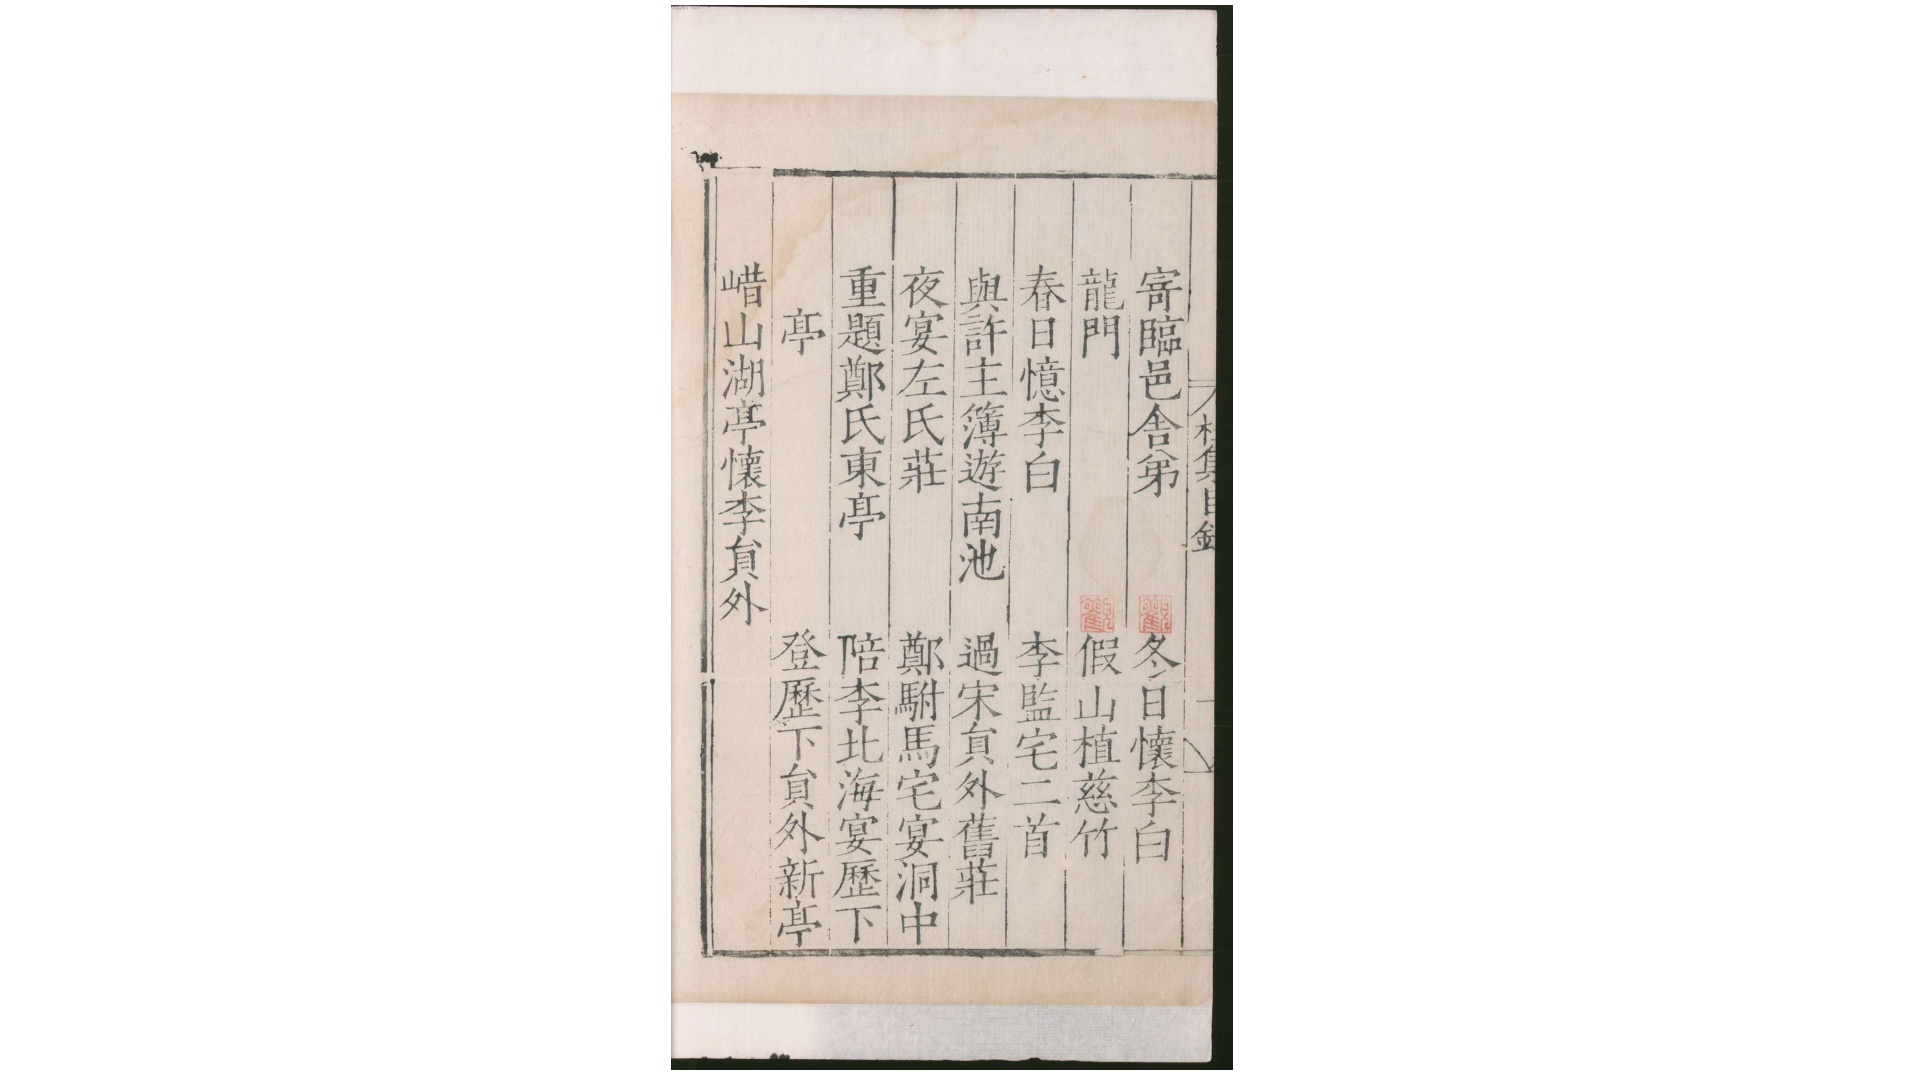 杜集目錄 一
寄臨邑舍弟 冬日懷李白
龍門 假山植慈竹
春日憶李白 李監宅二首
與許主簿遊南池 過宋貟外舊莊
夜宴左氏莊 鄭駙馬宅宴洞中
重題鄭氏東亭 陪李北海宴歷下
亭 登歷下貟外新亭
㟙山湖亭懷李貟外
觀
觀